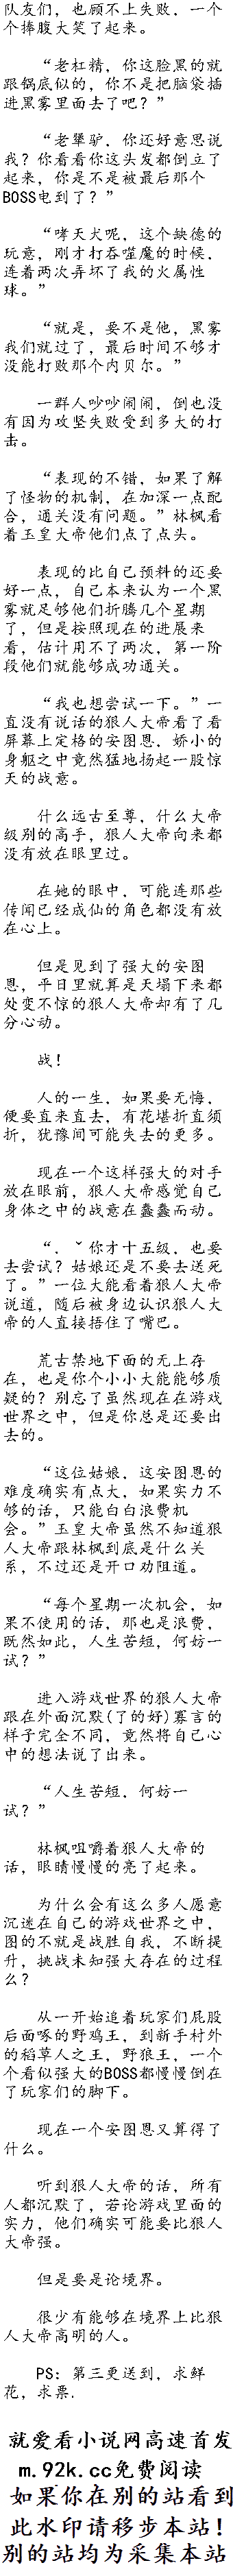 队友们，也顾不上失败．一个
个捧腹大笑了起来。
“老杠精，你这脸黑的就
跟锅底似的，你不是把脑袋插
进黑雾里面去了吧？”
“老犟驴．你还好意思说
我？你看看你这头发都倒立了
起来，你是不是被最后那个
BOSS电到了？”
“哮天犬呢，这个缺德的
玩意，刚才打吞噬魔的时候．
连着两次弄坏了我的火属性
球。”
“就是，要不是他，黑雾
我们就过了，最后时间不够才
没能打败那个内贝尔。”
一群人吵吵闹闹，倒也没
有因为攻坚失败受到多大的打
击。
“表现的不错，如果了解
了怪物的机制，在加深一点配
合，通关没有问题。”林枫看
着玉皇大帝他们点了点头。
表现的比自己预料的还要
好一点，自己本来认为一个黑
雾就足够他们折腾几个星期
了，但是按照现在的进展来
看，估计用不了两次，第一阶
段他们就能够成功通关。
“我也想尝试一下。”一
直没有说话的狠人大帝看了看
屏幕上定格的安图恩，娇小的
身躯之中竟然猛地扬起一股惊
天的战意。
什么远古至尊，什么大帝
级别的高手，狠人大帝向来都
没有放在眼里过。
在她的眼中，可能连那些
传闻已经成仙的角色都没有放
在心上。
但是见到了强大的安图
恩，平日里就算是天塌下来都
处变不惊的狠人大帝却有了几
分心动。
战！
人的一生，如果要无悔，
便要直来直去，有花堪折直须
折，犹豫间可能失去的更多。
现在一个这样强大的对手
放在眼前，狠人大帝感觉自己
身体之中的战意在蠢蠢而动。
“．ˇ你才十五级．也要
去尝试？姑娘还是不要去送死
了。”一位大能看着狠人大帝
说道，随后被身边认识狠人大
帝的人直接捂住了嘴巴。
荒古禁地下面的无上存
在，也是你个小小大能能够质
疑的？别忘了虽然现在在游戏
世界之中，但是你总是还要出
去的。
“这位姑娘．这安图恩的
难度确实有点大，如果实力不
够的话，只能白白浪费机
会。”玉皇大帝虽然不知道狠
人大帝跟林枫到底是什么关
系，不过还是开口劝阻道。
“每个星期一次机会，如
果不使用的话，那也是浪费，
既然如此，人生苦短，何妨一
试？”
进入游戏世界的狠人大帝
跟在外面沉默(了的好)寡言的
样子完全不同，竟然将自己心
中的想法说了出来。
“人生苦短．何妨一
试？”
林枫咀嚼着狠人大帝的
话，眼睛慢慢的亮了起来。
为什么会有这么多人愿意
沉迷在自己的游戏世界之中，
图的不就是战胜自我，不断提
升，挑战未知强大存在的过程
么？
从一开始追着玩家们屁股
后面啄的野鸡王，到新手村外
的稻草人之王，野狼王，一个
个看似强大的BOSS都慢慢倒在
了玩家们的脚下。
现在一个安图恩又算得了
什么。
听到狠人大帝的话，所有
人都沉默了，若论游戏里面的
实力，他们确实可能要比狠人
大帝强。
但是要是论境界。
很少有能够在境界上比狠
人大帝高明的人。
PS：第三更送到，求鲜
花，求票．
就爱看小说网高速首发
m.92k.cc免费阅读
如果你在别的站看到
此水印请移步本站！
别的站均为采集本站